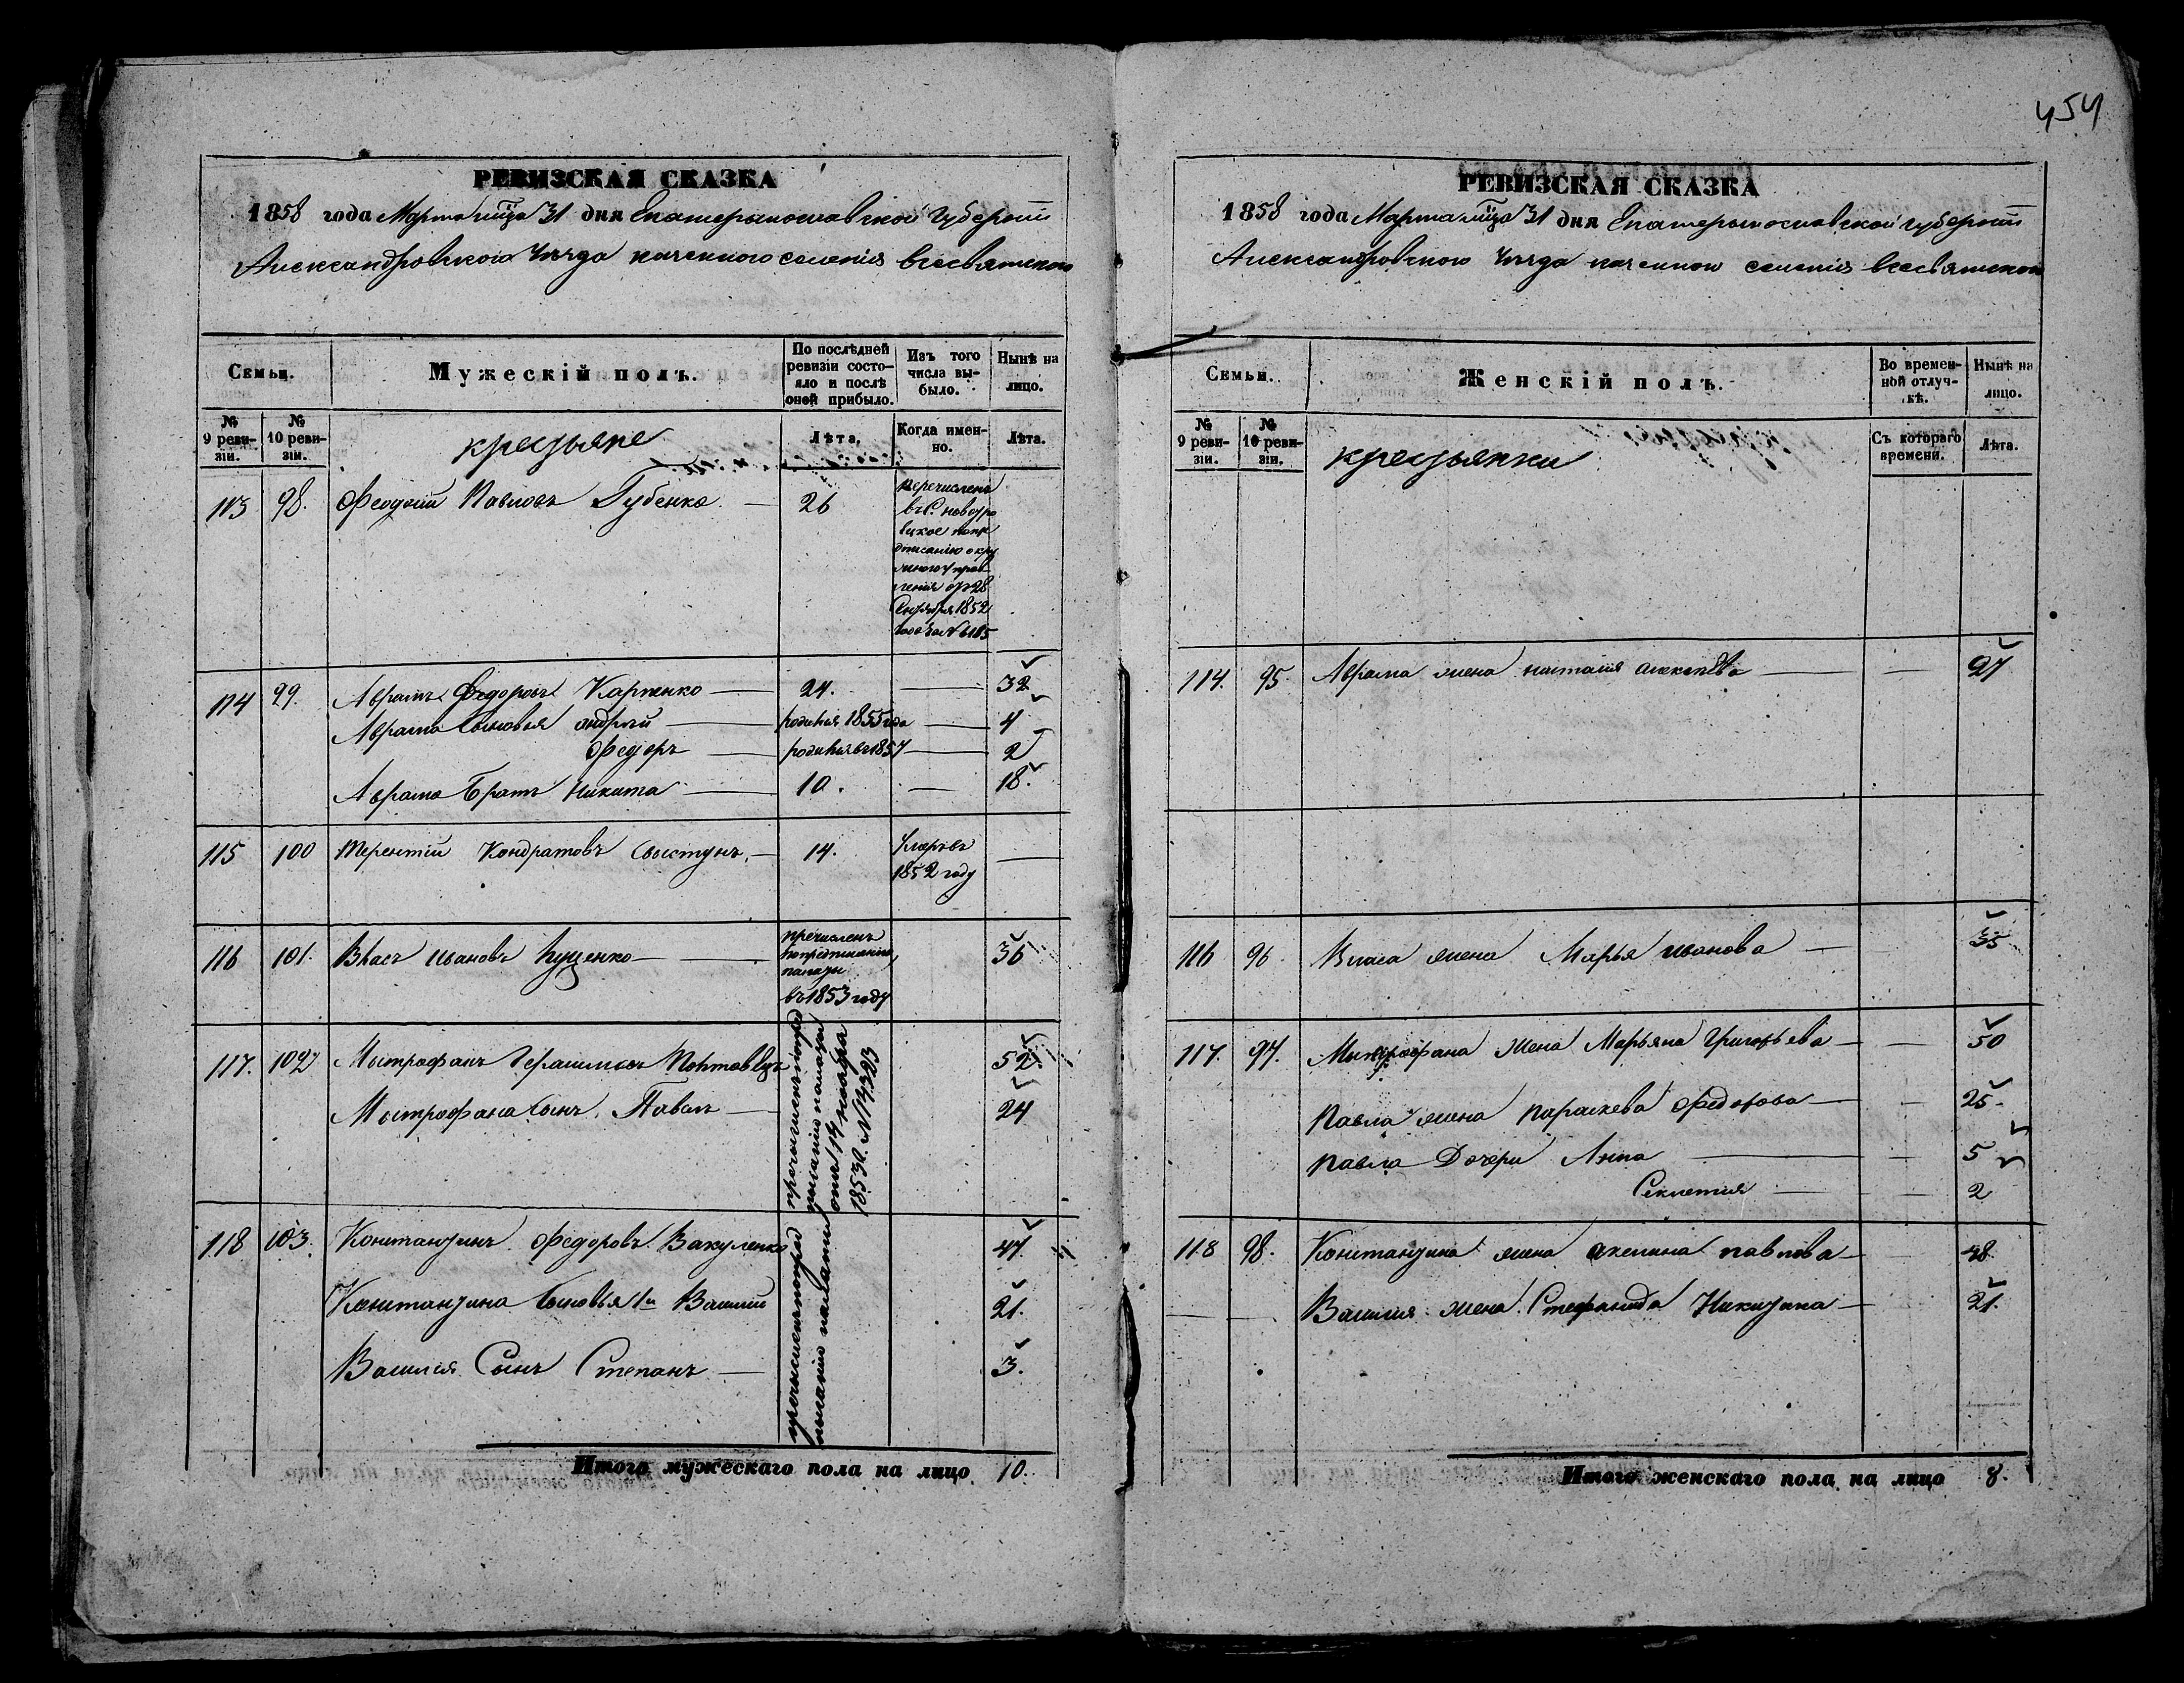 454
РЕВИЗСКАЯ СКАЗКА
1858 года Марта мца 31 дня Екатеринославской Губерніи
Александровского Уѣзда казенного селенія Всесвятского
Семьи.
Мужескій полъ.
По послѣдней ревизіи состояло и послѣ оной прибыло.
Изъ того числа выбыло.
Нынѣ на лицо.
№ 9 ревизіи.
№ 10 ревизіи.
крестьяне
Лѣта.
Когда именно.
Лѣта.
113 98. Феодосій Павловъ Губенко. — 26
перечисленъ
въ С. новотро
ицкое по пре
дписанію окру
жного управ
ленія отъ 28
Сентября 1852
года за № 6185
114 99. Аврамъ Федоровъ Карпенко — 24. — 32
Аврама сыновья андрей — родился 1855 года — 4
Федоръ — родился въ 1857 — 2
Аврама Братъ Никита — 10. — 18.
115 100 Терентій Кондратовъ Свистунъ. — 14. Умеръ въ —
1852 году
116 101. Власъ Ивановъ Куценко — 36
пречисленъ
по предписанію
палаты
въ 1853 году
117. 102 Митрофанъ Герасимовъ Полтавецъ 52.
Митрофана сынъ. Павелъ — 24
пречисленъ по пред
писанію палаты
отъ 14 ноября
1853 г. № 14323
118 103. Константинъ Федоровъ Вакуленко 47.
Константина Сыновья 1й Василій 21.
Василія Сынъ Степанъ — 3.
пречисленъ по пред
писанію палаты
Итого мужескаго пола на лицо 10.
РЕВИЗСКАЯ СКАЗКА
1858 года Марта мца 31 дня Екатеринославской губерніи
Александровского Уѣзда казенного селенія Всесвятского
Семьи.
Женскій полъ.
Во временной отлучкѣ.
Нынѣ на лицо.
№ 9 ревизіи.
№ 10 ревизіи.
крестьянки
Съ котораго времени.
Лѣта.
114. 95. Аврама жена наталія алексѣева — — 27
116 96. Власа жена Марья иванова — 35
117. 97. Митрофана жена Марьяна Григорьева — — 50
Павла жена параскева Федорова — — 25.
Павла Дочери Анна — — 5
Секлетия — — 2
118 98. Константина жена акелина павлова — 48.
— — Василия жена. Стефанида Никитина — 21.
Итого женскаго пола на лицо 8.